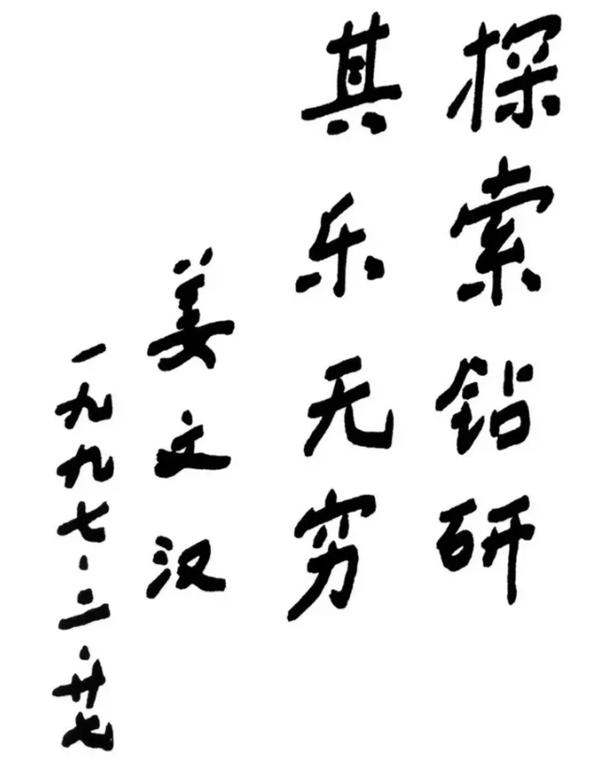 探索钻研
其乐无穷
姜文汉
一九九七·二·廿七